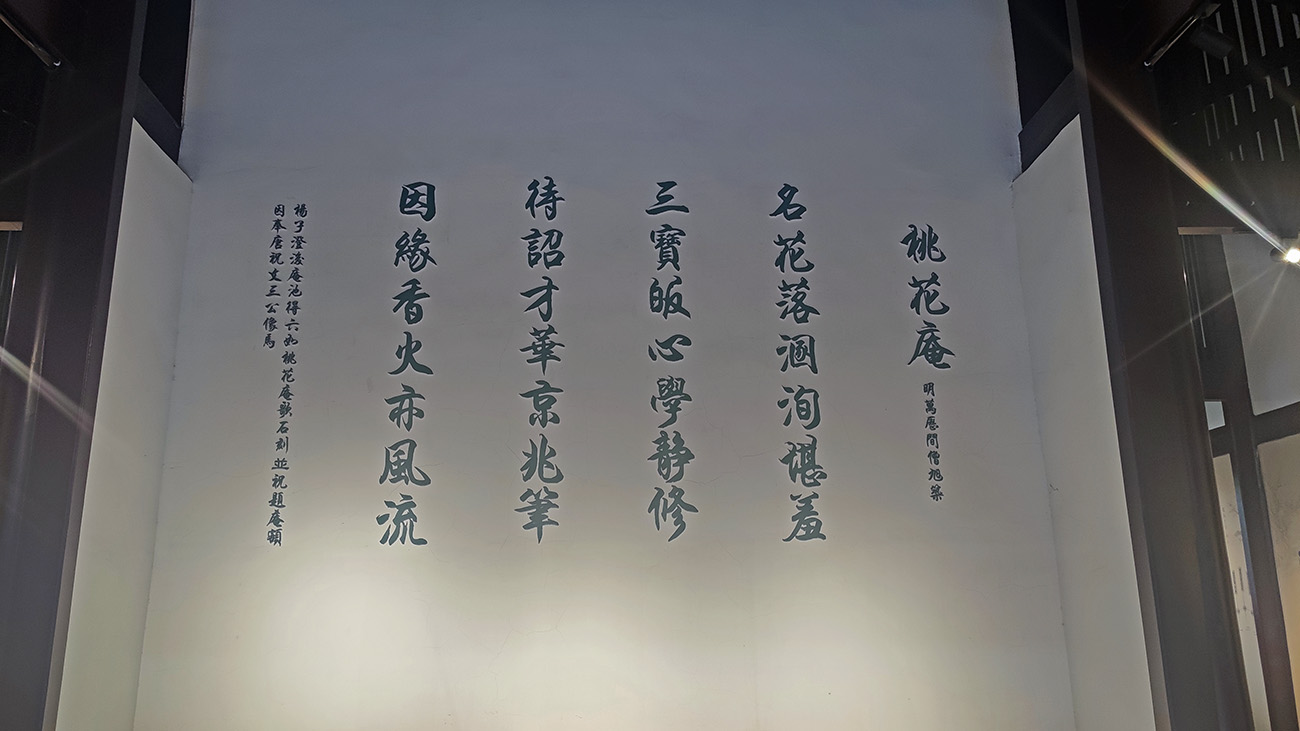 桃花庵
明萬曆間僧旭築
名花落溷洵堪羞
三寶皈心學静修
待詔才華京兆筆
因緣香火亦風流
楊子澄浚庵池得六如桃花庵歌石刻並祝題庵額
因奉唐祝文三公像焉